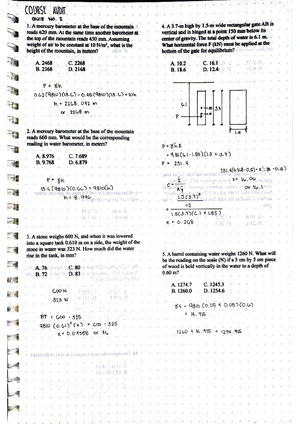 COURSE AUDIT
QUIZ NO. 2
1. A mercury barometer at the base of the mountain
reads 620 mm. At the same time another barometer at
the top of the mountain reads 450 mm. Assuming
weight of air to be constant at 10 N/m³, what is the
height of the mountain, in meters?
A. 2468 C. 2268
B. 2368 D. 2168
P = γh
0.62 (9810)(13.6) - 0.45 (9810)(13.6) = 10h
h = 2268.072 m
or 2268 m
2. A mercury barometer at the base of the mountain
reads 660 mm. What would be the corresponding
reading in water barometer, in meters?
A. 8.976 C. 7.689
B. 9.768 D. 6.879
P = γh
13.6 (9810)(0.66) = 9810(h)
h = 8.976
3. A stone weighs 600 N, and when it was lowered
into a square tank 0.610 m on a side, the weight of the
stone in water was 323 N. How much did the water
rise in the tank, in mm?
A. 76 C. 80
B. 72 D. 83
600 N
323 N
BF = 600 - 323
9810 (0.61)² (x) = 600 - 323
4. A 3.7-m high by 1.5-m wide rectangular gate AB is
vertical and is hinged at a point 150 mm below its
center of gravity. The total depth of water is 6.1 m.
What horizontal force F (kN) must be applied at the
bottom of the gate for equilibrium?
A. 10.2 C. 16.1
B. 18.6 D. 12.4
6.1
3.7
1.5
P = γhA
P = 231.4
12
5. A barrel containing water weighs 1260 N. What will
be the reading on the scale (N) if a 5 cm by 5 cm piece
of wood is held vertically in the water to a depth of
0.60 m?
A. 1274.7 C. 1245.3
B. 1260.0 D. 1254.6
BF = 9810 (0.05 × 0.05)(0.6)
= 14.715
1260 + 14.715 = 1274.715